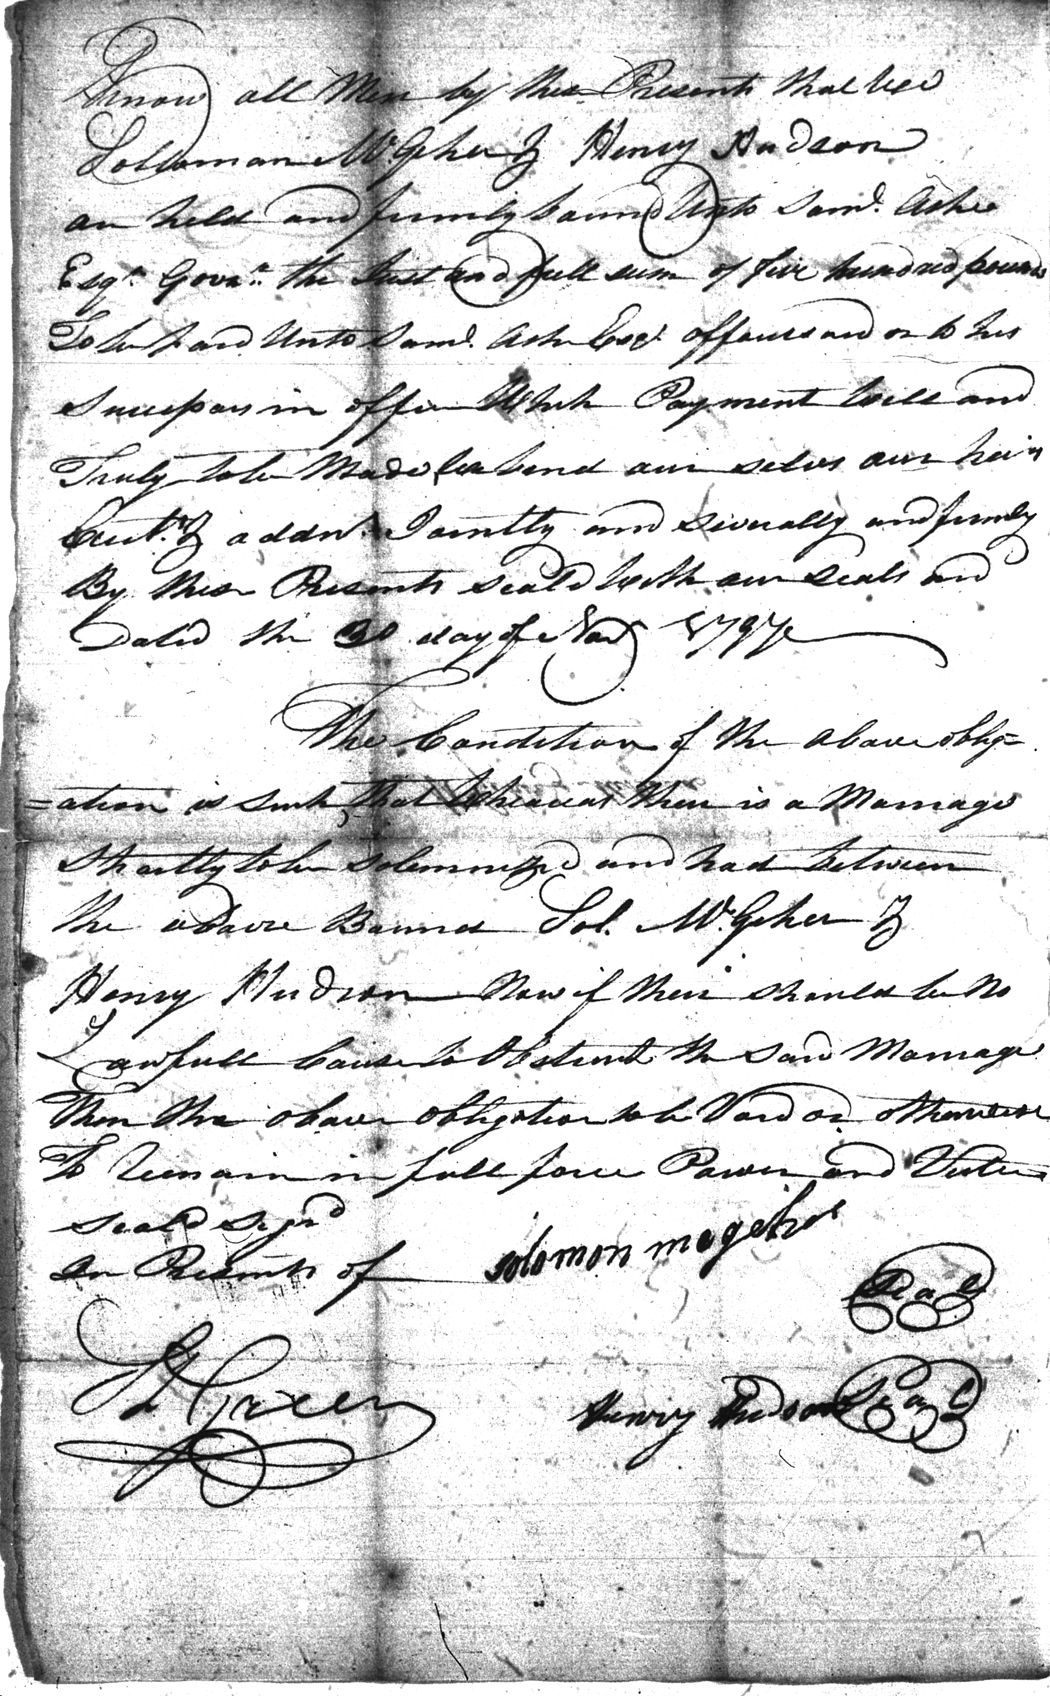 Know all Men by these Presents that wee
Solloman McGeher & Henry Hudson
are held and firmly bound Unto Saml. Ashe
Esqr. Govnr. the Just and full sum of five hundred pounds
To be paid Unto Saml. Ashe Esqr. afforesaid or to his
Successors in office Which Payment well and
Truly to be Made we bend our selves our heirs
Exect. & addn. Jointly and severally and firmly
By these Presents seald with our seals and
Dated the 30 day of Nov 1797
The Condition of the above oblig=
=ation is such that Wheareas there is a Marriage
Shortly to be solemnized and had between
the above Bound Sol. McGeher &
Henry Hudson Now if their should be No
Lawfull Cause to Obstruct the said Marriage
Then the above obligation to be Void or otherwise
To Remain in full force Power and Vertue
seald signd
In Presents of
solomon megeher
Seal
Henry Hudson Seal